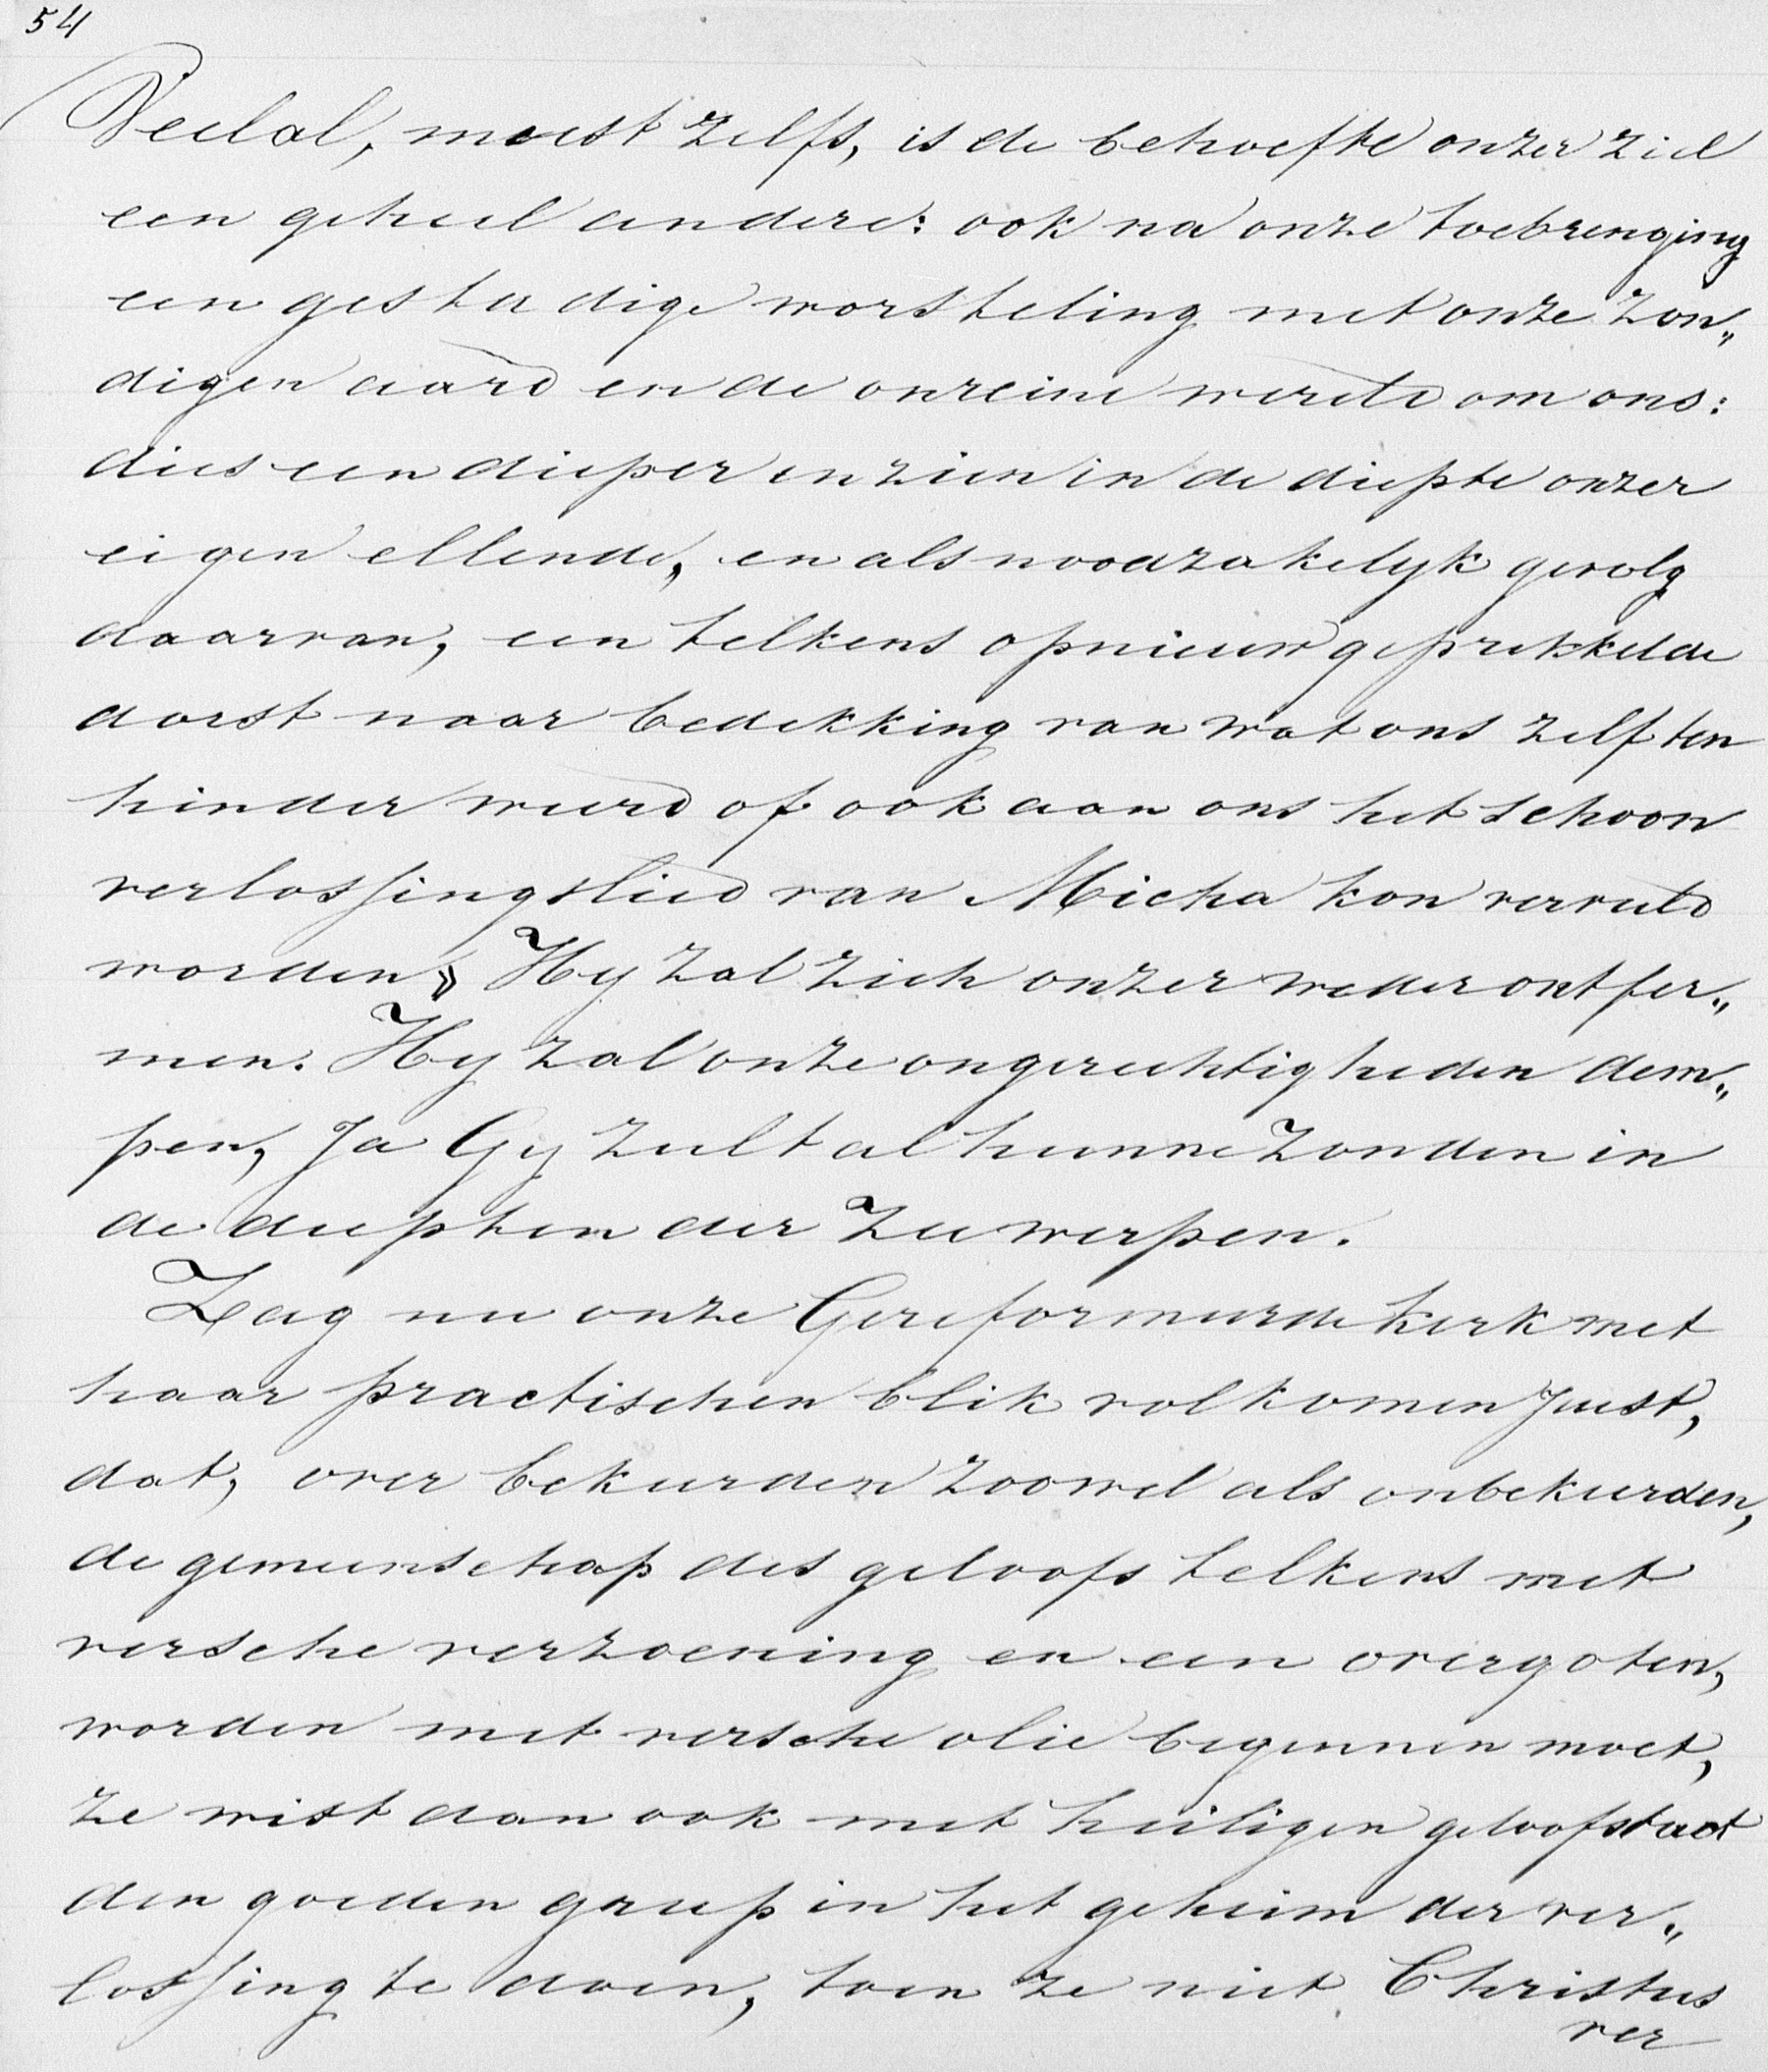 54
Veelal, meest zelfs, is de behoefte onzer ziel
een geheel andere: ook na onze toebrenging
een gestadige worsteling met onze zon„
digen aard en de onreine wereld om ons:
dies een dieper inzien in de diepte onzer
eigen ellende, en als noodzakelyk gevolg
daarvan, een telkens opnieuw geprikkelde
dorst naar bedekking van wat ons zelf ten
hinder werd of ook aan ons het schoon
verlossingslied van Micha kon vervuld
worden» Hy zal zich onzer weder ontfer„
men. Hy zal onze ongerechtigheden dem„
pen, Ja Gy zult al hunne zonden in
de diepten der Zee werpen.
Zag nu onze Gereformeerde kerk met
haar practischen blik volkomen Juist,
dat, over bekeerden zoowel als onbekeerden,
de gemeenschap des geloofs telkens met
versche verzoening en een overgoten,
worden met versche olie beginnen moet,
ze wist dan ook met heiligen geloofstact
den goeden greep in het geheim der ver„
lossing te doen, toen ze niet Christus
ver